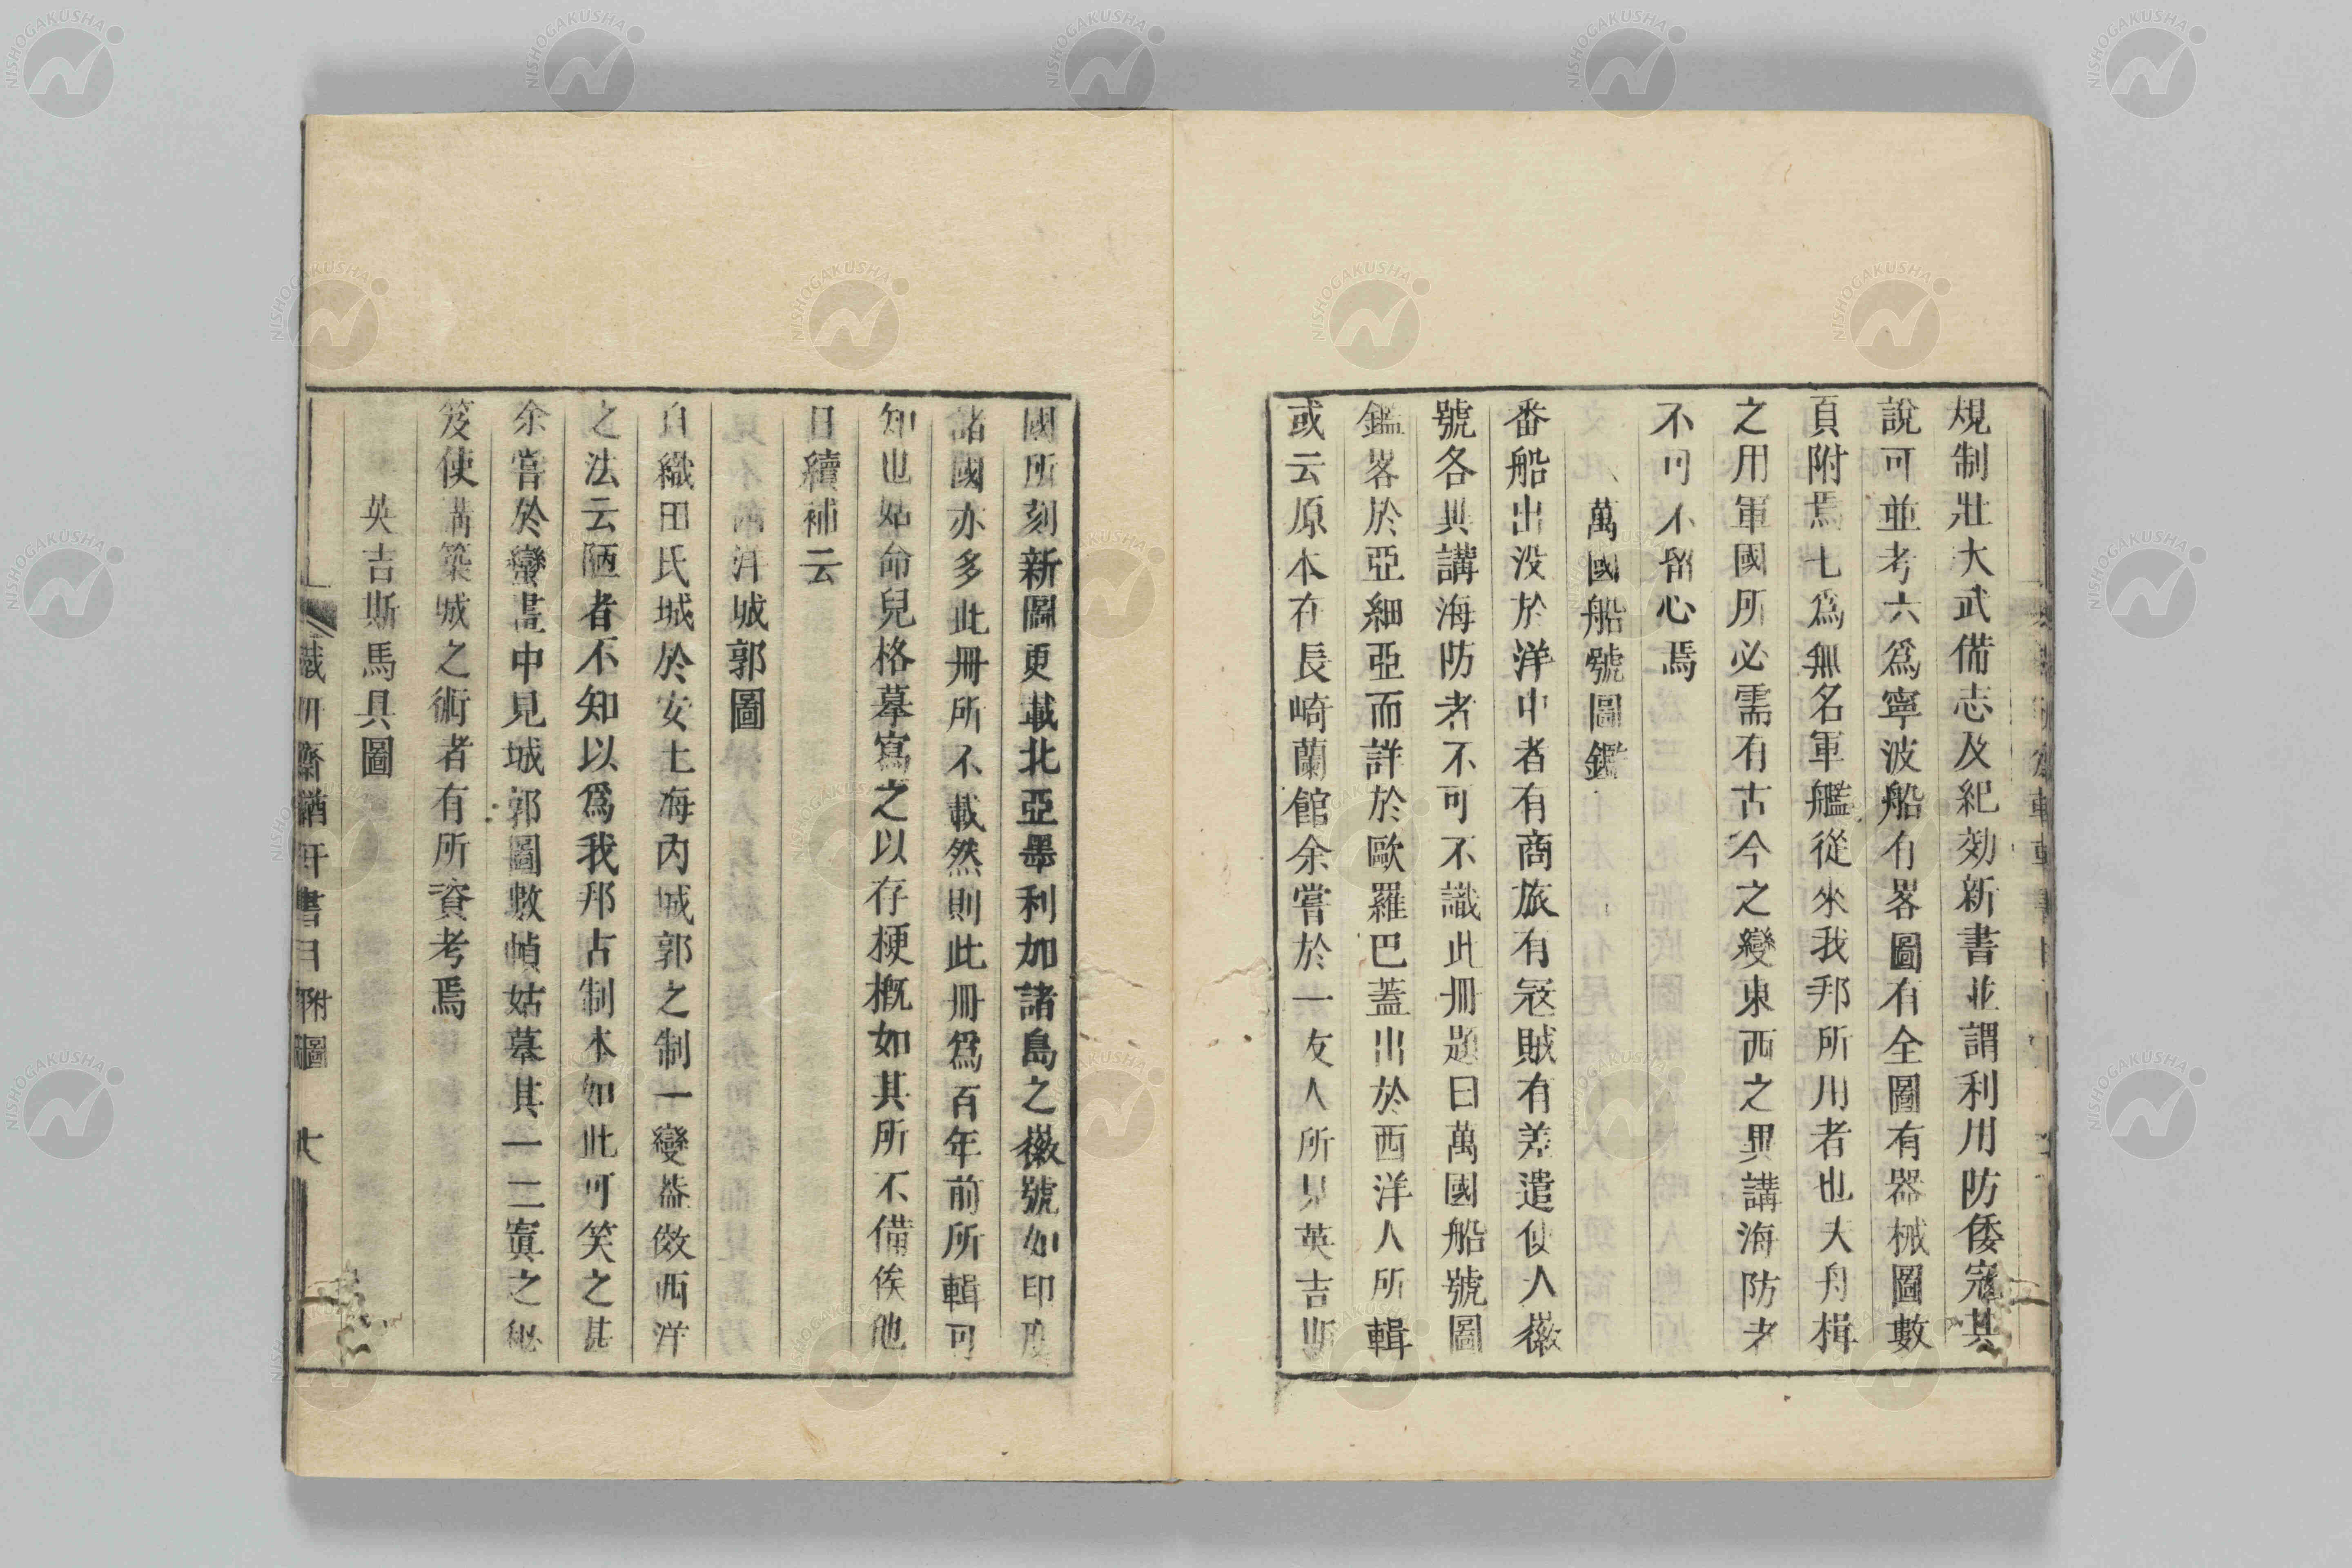 規制壯大武備志及紀効新書並謂利用防倭寇其
說可並考六爲寧波船有畧圖有全圖有器械圖數
頁附焉七爲無名軍艦從來我邦所用者也大舟楫
之用軍國所必需有古今之變東西之異講海防者
不可不留心焉
萬國船號圖鑑
番船出没於洋中者有商旅有冦賊有差遣使人徽
號各異講海防者不可不識此冊題曰萬國船號圖
鑑畧於亞細亞而詳於歐羅巴蓋出於西洋人所輯
或云原本在長崎蘭館余嘗於一友人所見英吉斯
國所刻新圖更載北亞墨利加諸島之徽號如印度
諸國亦多此冊所不載然則此冊爲百年前所輯可
知也姑命兒格摹寫之以存梗概如其所不備俟他
日續補云
西洋城郭圖
自織田氏城於安土海内城郭之制一變蓋倣西洋
之法云陋者不知以爲我邦古制本如此可笑之甚
余嘗於蠻畫中見城郭圖數幀姑摹其一二寘之
笈使講築城之術者有所資考焉
英吉斯馬具圖
附圖